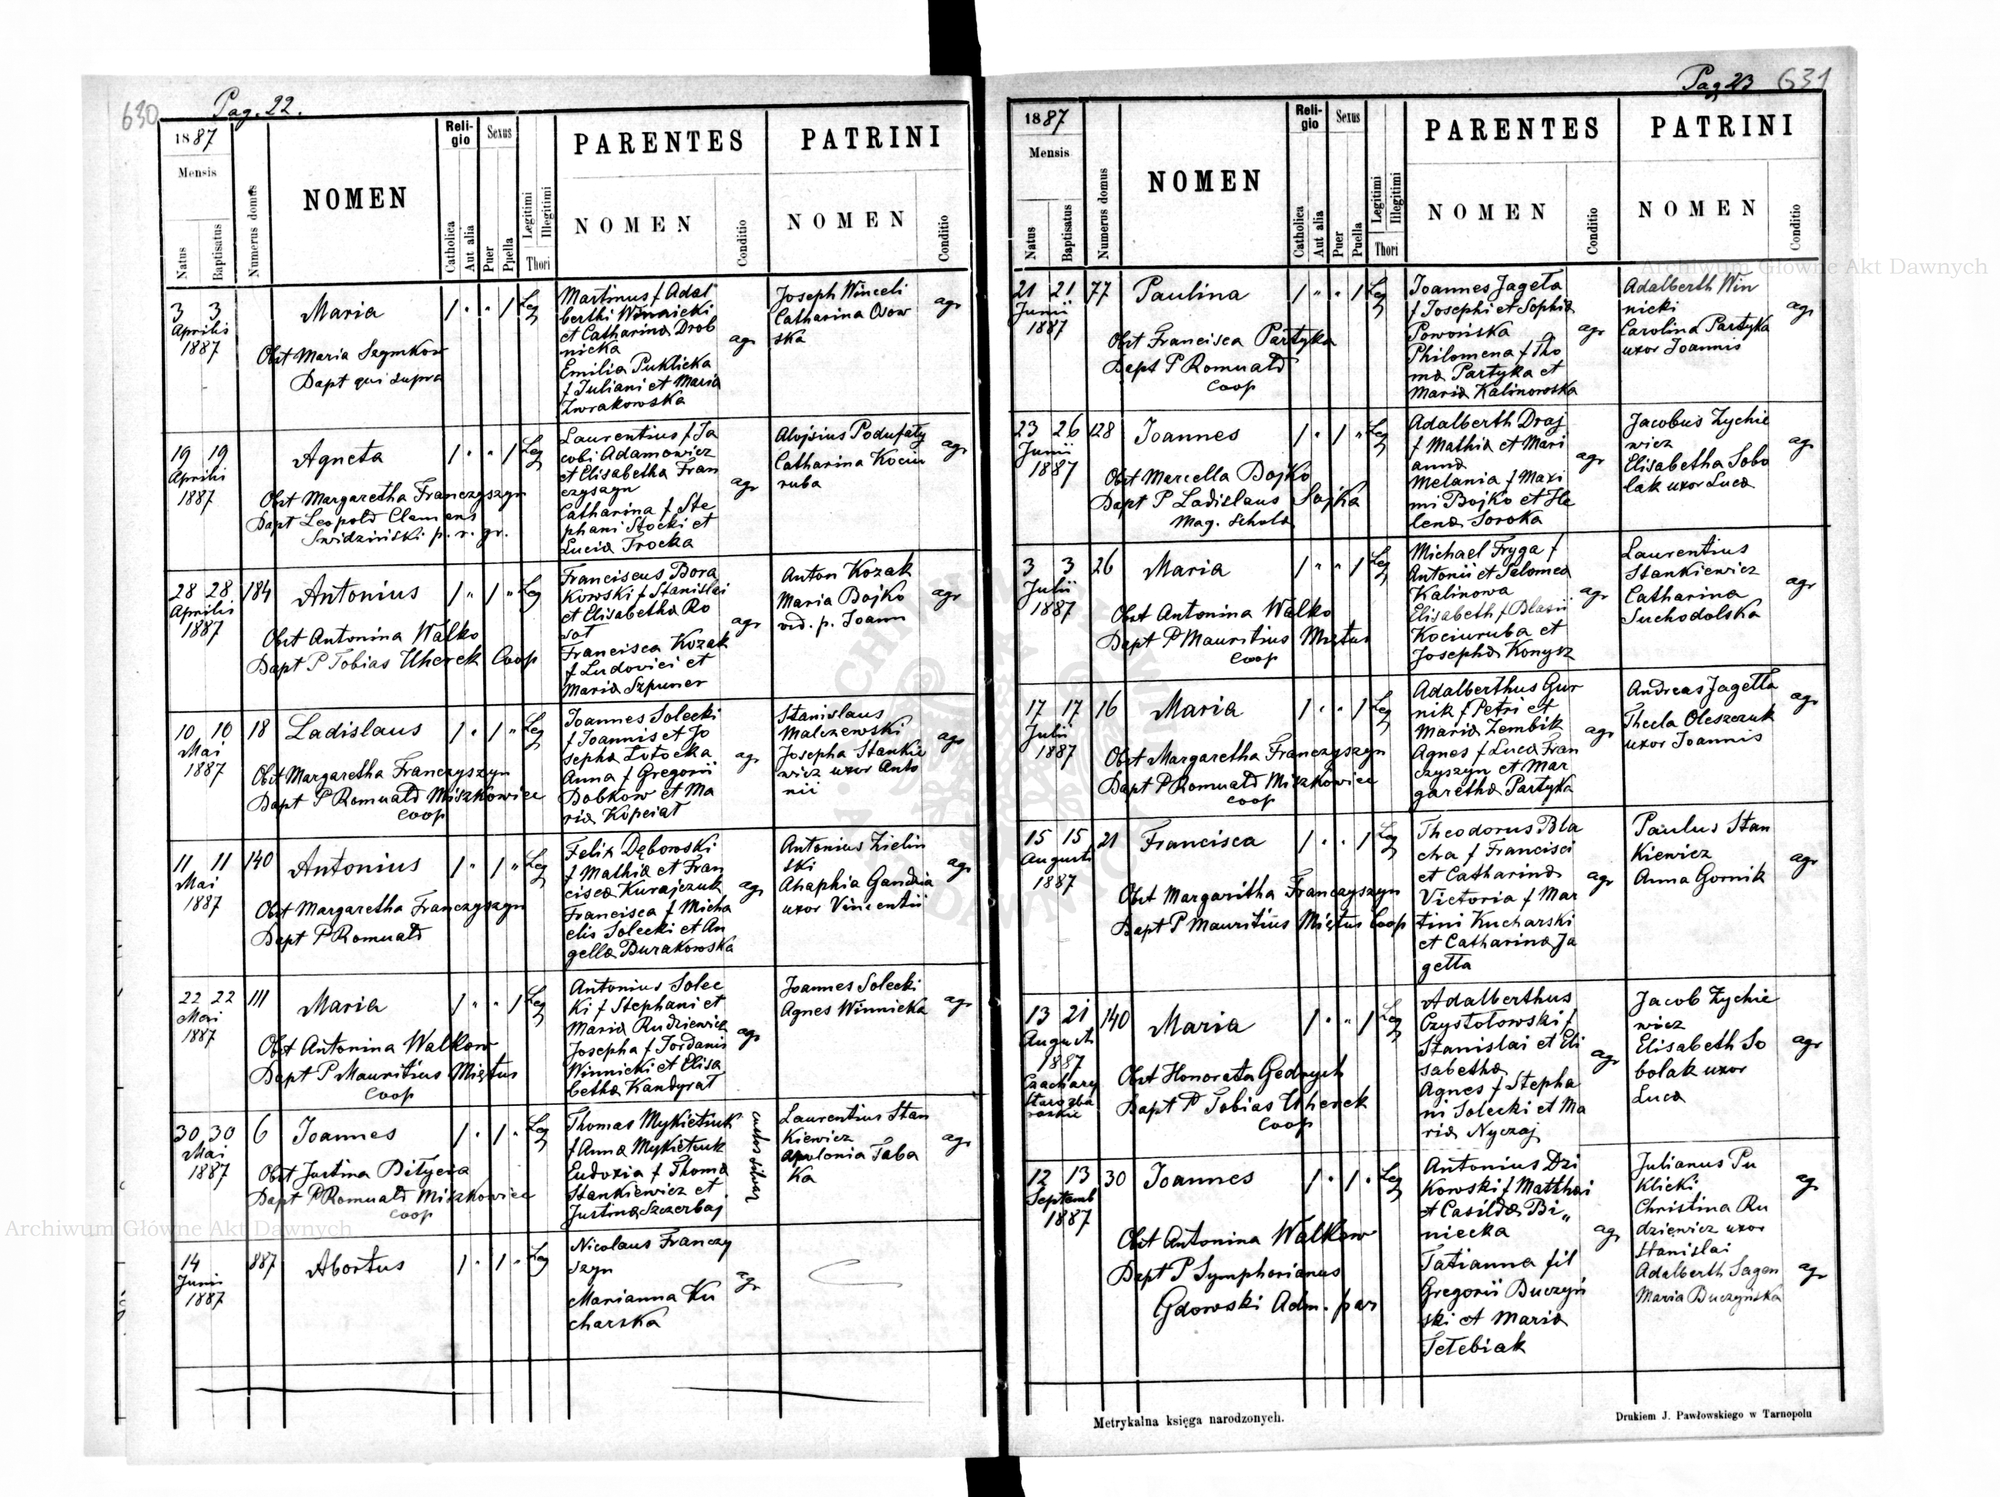 630
Pag. 22.
1887
Mensis
Natus
Baptisatus
Numerus domus
NOMEN
Religio
Catholica
Aut alia
Sexus
Puer
Puella
Legitimi
Illegitimi
Thori
PARENTES
NOMEN
Conditio
PATRINI
NOMEN
Conditio
3 3
Aprilis
1887
Maria
1 " " 1 Leg
Obst Maria Szymkow
Bapt qui supra
Martinus f Adal
berthi Winnicki
et Catharina Drob
nicka
Emilia Puklicka
f Juliani et Maria
Zwrakowska
agr
Joseph Winceli
Catharina Osow
ska
agr
19 19
Aprilis
1887
Agneta
1 " " 1 Leg
Obst Margaretha Franczyszyn
Bapt Leopold Clemens
Swidziński p. r. gr.
Laurentius f Ja
cobi Adamowicz
et Elisabetha Fran
czyszyn
Catharina f Ste
phani Stocki et
Lucia Trocka
agr
Aloysius Podufaty
Catharina Kociu
ruba
agr
28 28
Aprilis
1887
184
Antonius
1 " 1 " Leg
Obst Antonina Walko
Bapt P Tobias Uherek Coop
Franciscus Bora
kowski f Stanislai
et Elisabetha Ro
sot
Francisca Kozak
f Ludovici et
Maria Szpuner
agr
Anton Kozak
Maria Bojko
vid. p. Joann
agr
10 10
Mai
1887
18
Ladislaus
1 " 1 " Leg
Obst Margaretha Franczyszyn
Bapt P Romuald Miszkowicz
Coop
Joannes Solecki
f Joannis et Jo
sepha Lotocka
Anna f Gregorii
Bobkow et Ma
ria Kopciat
agr
Stanislaus
Malczewski
Josepha Stankie
wicz uxor Anto
nii
agr
11 11
Mai
1887
140
Antonius
1 " 1 " Leg
Obst Margaretha Franczyszyn
Bapt P Romuald
Felix Dęborowski
f Mathia et Fran
cisca Kurajczuk
Francisca f Micha
elis Solecki et An
gella Burakowska
agr
Antonius Zielin
ski
Ahaphia Gandzia
uxor Vincentii
agr
22 22
Mai
1887
111
Maria
1 " " 1 Leg
Obst Antonina Walkow
Bapt P Mauritius Miętus
Coop
Antonius Solec
ki f Stephani et
Maria Rudziewicz
Josepha f Jordanis
Winnicki et Elisa
betha Kandyrat
agr
Joannes Solecki
Agnes Winnicka
agr
30 30
Mai
1887
6
Joannes
1 " 1 " Leg
Obst Justina Bityera
Bapt P Romuald Miszkowicz
Coop
Thomas Mykietiuk
f Anna Mykietiuk
Eudoxia f Thoma
Stankiewicz et
Justina Szczerbaj
custos silvar
Laurentius Stan
kiewicz
Apolonia Taba
ka
agr
14
Junii
1887
887
Abortus
1 " 1 " Leg
Nicolaus Franczy
szyn
Marianna Ku
charska
agr
Pag 23
631
1887
Mensis
Natus
Baptisatus
Numerus domus
NOMEN
Religio
Catholica
Aut alia
Sexus
Puer
Puella
Legitimi
Illegitimi
Thori
PARENTES
NOMEN
Conditio
PATRINI
NOMEN
Conditio
21 21
Junii
1887
77
Paulina
1 " " 1 Leg
Obst Francisca Partyka
Bapt P Romuald
Coop
Joannes Jageta
f Josephi et Sophia
Powońska
Philomena f Tho
ma Partyka et
Maria Kalinowska
agr
Adalberth Win
nicki
Carolina Partyka
uxor Joannis
agr
23 26
Junii
1887
128
Joannes
1 " 1 " Leg
Obst Marcella Bojko
Bapt P Ladislaus Sojka
Mag. Schola
Adalberth Draj
f Mathia et Mari
anna
Melania f Maxi
mi Bojko et He
lena Soroka
agr
Jacobus Zychie
wicz
Elisabetha Sobo
lak uxor Luca
agr
3 3
Julii
1887
26
Maria
1 " " 1 Leg
Obst Antonina Walko
Bapt P Mauritius Miętus
Coop
Michael Fryga f
Antonii et Salomea
Kalinowa
Elisabeth f Blasii
Kociuruba et
Josepha Konysz
agr
Laurentius
Stankiewicz
Catharina
Suchodolska
agr
17 17
Julii
1887
16
Maria
1 " " 1 Leg
Obst Margaretha Franczyszyn
Bapt P Romuald Miszkowicz
Coop
Adalberthus Gur
nik f Petri et
Maria Zembik
Agnes f Luca Fran
czyszyn et Mar
garetha Partyka
agr
Andreas Jagetta
Thecla Oleszczuk
uxor Joannis
agr
15 15
Augusti
1887
21
Francisca
1 " " 1 Leg
Obst Margaritha Franczyszyn
Bapt P Mauritius Miętus Coop
Theodorus Bla
cha f Francisci
et Catharina
Victoria f Mar
tini Kucharski
et Catharina Ja
getta
agr
Paulus Stan
kiewicz
Anna Gornik
agr
13 21
Augusti
1887
140
Maria
1 " " 1 Leg
Obst Honorata Gedrych
Bapt P Tobias Uherek
Coop
Adalberthus
Czystotowski f
Stanislai et Eli
sabetha
Agnes f Stepha
ni Solecki et Ma
ria Nyczaj
agr
Jacob Zychie
wicz
Elisabeth So
bolak uxor
Luca
agr
12 13
Septemb
1887
30
Joannes
1 " 1 " Leg
Obst Antonina Walkow
Bapt P Symphorianus
Gdowski Adm. par
Antonius Dzi
kowski f Matthai
et Casilda Bi"
niecka
Tatianna fil
Gregorii Buczyń
ski et Maria
Tetebiak
agr
Julianus Pu
klicki
Christina Ru
dziewicz uxor
Stanislai
Adalberth Sagen
Maria Buczyńska
agr
agr
Metrykalna księga narodzonych.
Drukiem J. Pawłowskiego w Tarnopolu
Archiwum Główne Akt Dawnych
Archiwum Główne Akt Dawnych